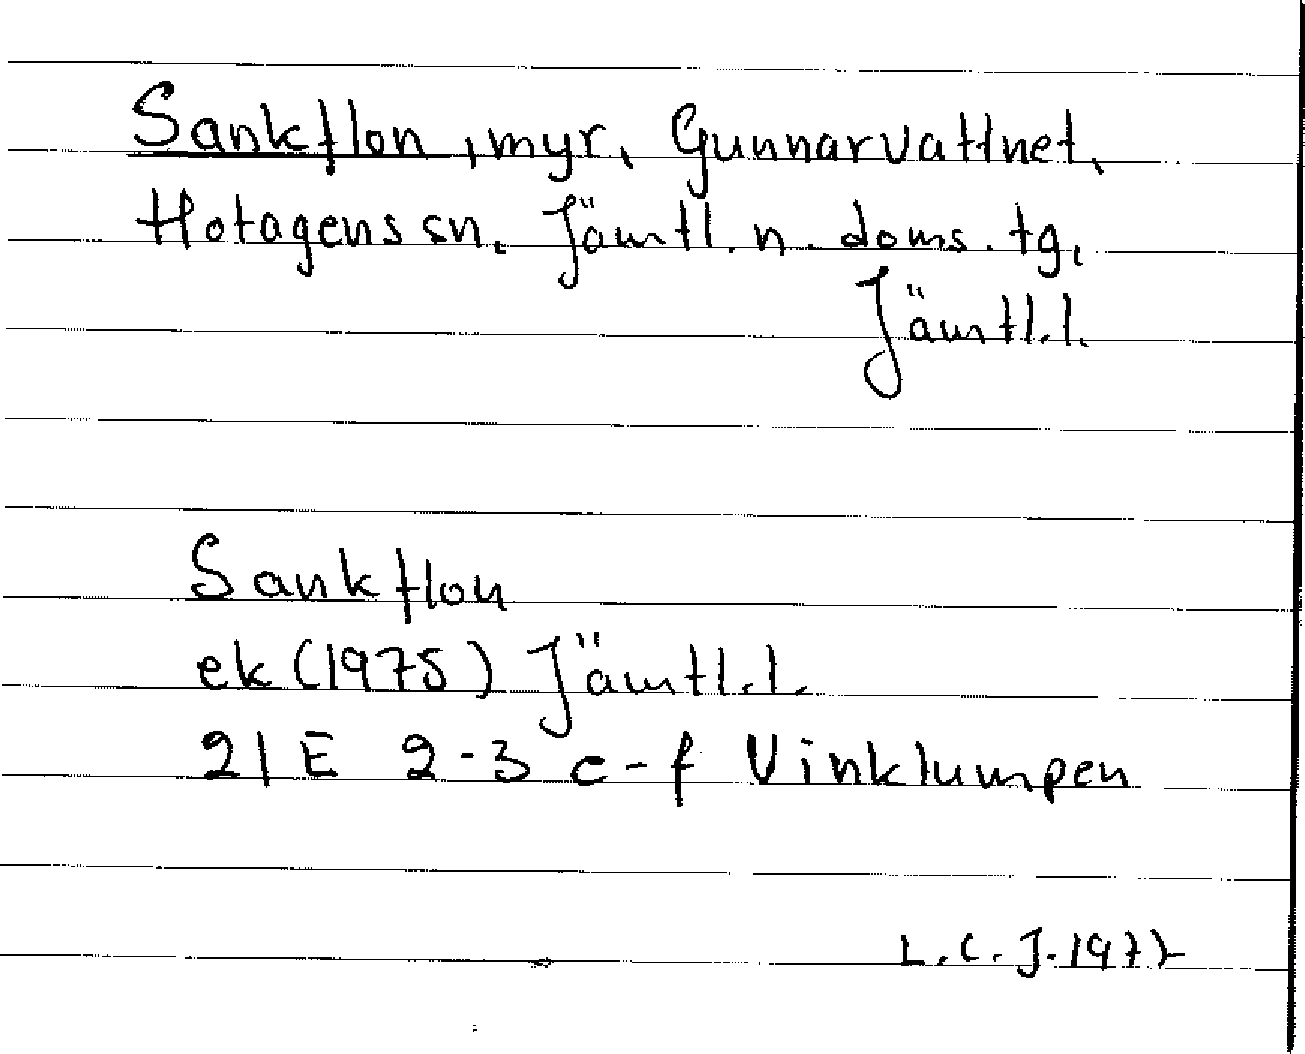 Sankflon, myr, Gunnarvattnet,
Hotagens sn. Jämtl. n. doms. tg,
Jämtl. l.
Sankflon
ek (1975) Jämtl. l.
21 E 2-3 c-f Vinklumpen
L. C. J. 1977